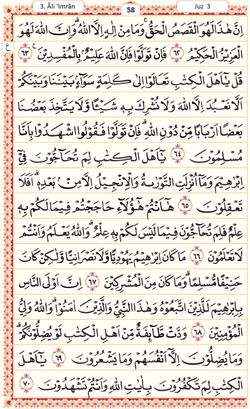 3. Âli 'Imrân 58 Juz 3
اِنَّ هٰذَا لَهُوَ الْقَصَصُ الْحَقُّ ۚ وَمَا مِنْ اِلٰهٍ اِلَّا اللّٰهُ ۗ وَاِنَّ اللّٰهَ لَهُوَ
الْعَزِيْزُ الْحَكِيْمُ ﴿٦٢﴾ فَاِنْ تَوَلَّوْا فَاِنَّ اللّٰهَ عَلِيْمٌۢ بِالْمُفْسِدِيْنَ ﴿٦٣﴾
قُلْ يٰٓاَهْلَ الْكِتٰبِ تَعَالَوْا اِلٰى كَلِمَةٍ سَوَآءٍۢ بَيْنَنَا وَبَيْنَكُمْ
اَلَّا نَعْبُدَ اِلَّا اللّٰهَ وَلَا نُشْرِكَ بِهٖ شَيْـًٔا وَّلَا يَتَّخِذَ بَعْضُنَا
بَعْضًا اَرْبَابًا مِّنْ دُوْنِ اللّٰهِ ۗ فَاِنْ تَوَلَّوْا فَقُوْلُوا اشْهَدُوْا بِاَنَّا
مُسْلِمُوْنَ ﴿٦٤﴾ يٰٓاَهْلَ الْكِتٰبِ لِمَ تُحَآجُّوْنَ فِيْٓ
اِبْرٰهِيْمَ وَمَآ اُنْزِلَتِ التَّوْرٰىةُ وَالْاِنْجِيْلُ اِلَّا مِنْۢ بَعْدِهٖ ۗ اَفَلَا
تَعْقِلُوْنَ ﴿٦٥﴾ هٰٓاَنْتُمْ هٰٓؤُلَآءِ حَاجَجْتُمْ فِيْمَا لَكُمْ بِهٖ
عِلْمٌ فَلِمَ تُحَآجُّوْنَ فِيْمَا لَيْسَ لَكُمْ بِهٖ عِلْمٌ ۗ وَاللّٰهُ يَعْلَمُ وَاَنْتُمْ
لَا تَعْلَمُوْنَ ﴿٦٦﴾ مَا كَانَ اِبْرٰهِيْمُ يَهُوْدِيًّا وَّلَا نَصْرَانِيًّا وَّلٰكِنْ كَانَ
حَنِيْفًا مُّسْلِمًا ۗ وَمَا كَانَ مِنَ الْمُشْرِكِيْنَ ﴿٦٧﴾ اِنَّ اَوْلَى النَّاسِ
بِاِبْرٰهِيْمَ لَلَّذِيْنَ اتَّبَعُوْهُ وَهٰذَا النَّبِيُّ وَالَّذِيْنَ اٰمَنُوْا ۗ وَاللّٰهُ وَلِيُّ
الْمُؤْمِنِيْنَ ﴿٦٨﴾ وَدَّتْ طَّآئِفَةٌ مِّنْ اَهْلِ الْكِتٰبِ لَوْ يُضِلُّوْنَكُمْ ۗ
وَمَا يُضِلُّوْنَ اِلَّآ اَنْفُسَهُمْ وَمَا يَشْعُرُوْنَ ﴿٦٩﴾ يٰٓاَهْلَ
الْكِتٰبِ لِمَ تَكْفُرُوْنَ بِاٰيٰتِ اللّٰهِ وَاَنْتُمْ تَشْهَدُوْنَ ﴿٧٠﴾